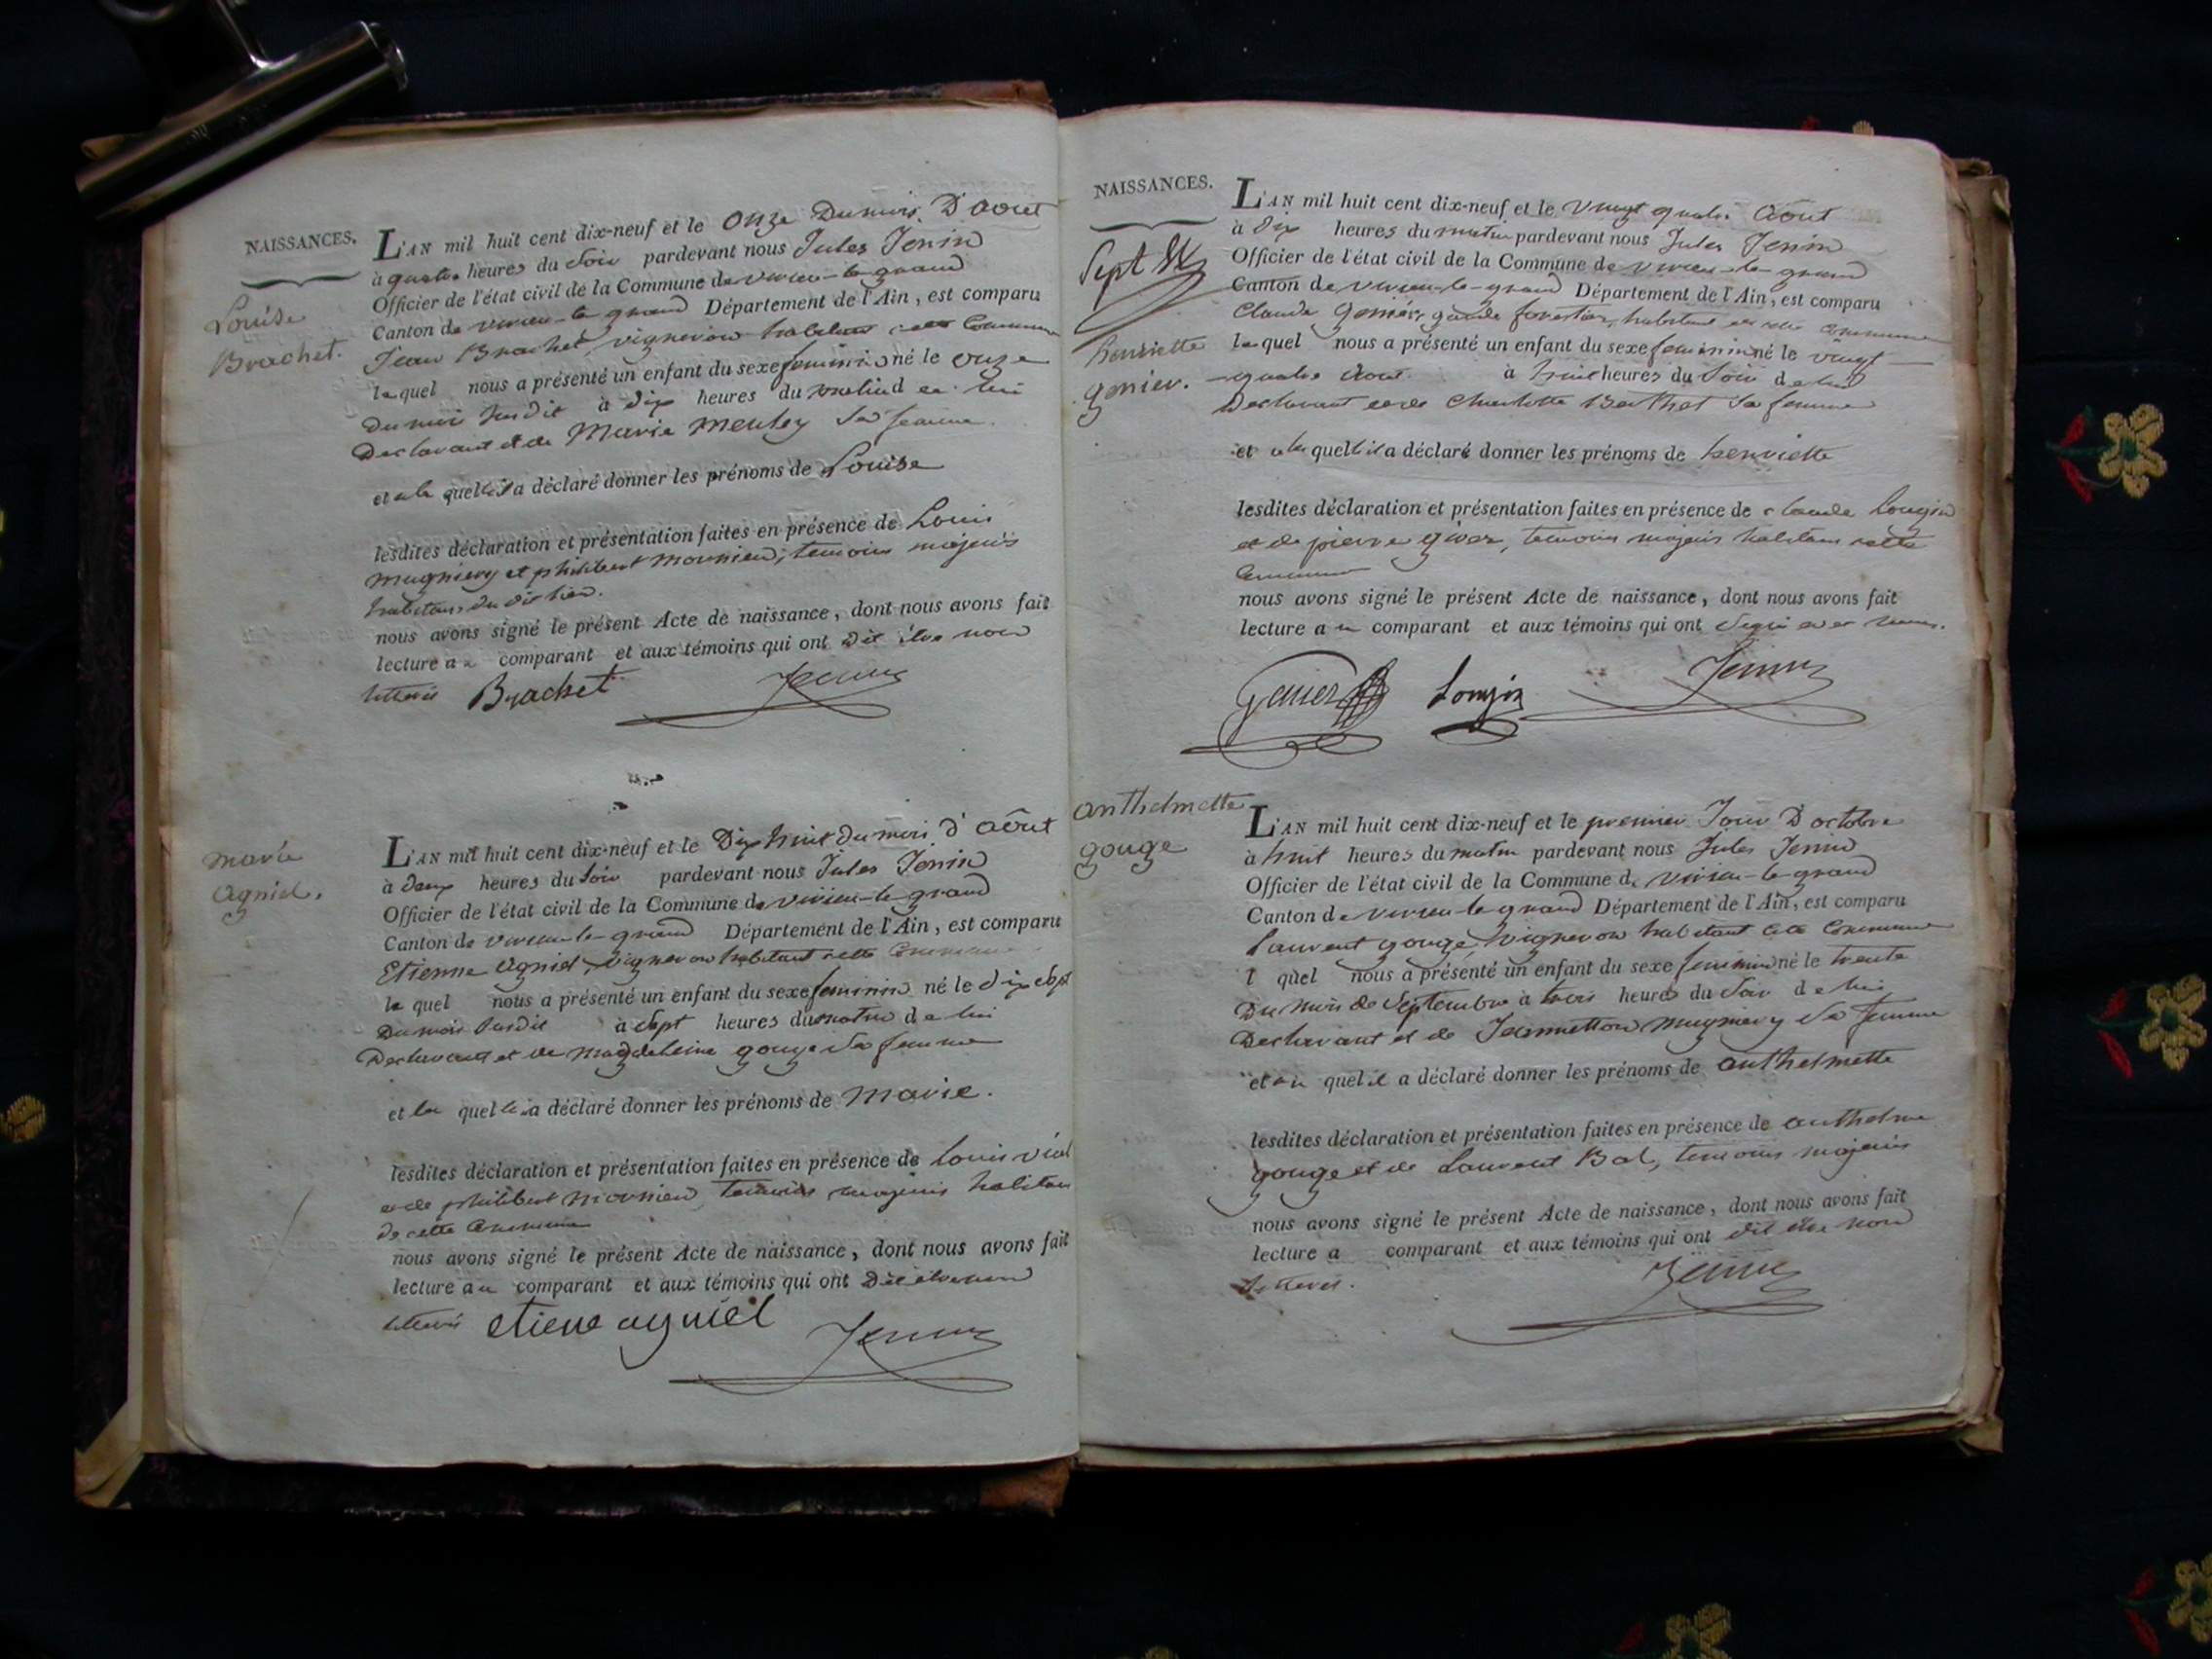 NAISSANCES.
Louise
Brachet.
L'AN mil huit cent dix-neuf et le onze Du mois D'aout
à quatre heures du Soir pardevant nous Jules Jenin
Officier de l'état civil de la Commune de virieu-le-grand
Canton de virieu-le grand Département de l'Ain, est comparu
Jean Brachet, vigneron habitant cette Commune
lequel nous a présenté un enfant du sexe feminin né le onze
du mois susdit à dix heures du matin de lui
Declarant et de Marie sa femme.
et a la quelle il a déclaré donner les prénoms de Louise
lesdites déclaration et présentation faites en présence de Louis
mugniery et philibert mornieu, temoins majeurs
habitans du dit lieu.
nous avons signé le présent Acte de naissance, dont nous avons fait
lecture au comparant et aux témoins qui ont Dit être non
lettrés Brachet Jenin
marie
agniel.
L'AN mil huit cent dix-neuf et le Dix huit du mois d'aôut
à Deux heures du Soir pardevant nous Jules Jenin
Officier de l'état civil de la Commune de virieu-le grand
Canton de virieu-le-grand Département de l'Ain, est comparu
Etienne agniel, vigneron habitant cette Commune
le quel nous a présenté un enfant du sexe feminin né le dix sept
Du mois susdit à sept heures du matin de lui
Declarant et de magdeleine gouge sa femme
et la quelle il a déclaré donner les prénoms de marie.
lesdites déclaration et présentation faites en présence de Louis vial
et de philibert mornieu, temoins majeurs habitans
de cette Commune
nous avons signé le présent Acte de naissance, dont nous avons fait
lecture au comparant et aux témoins qui ont Dit être non
lettrés etiene agniel Jenin
NAISSANCES.
henriette
genier.
L'AN mil huit cent dix-neuf et le vingt quatre Aôut
à dix heures du matin pardevant nous Jules Jenin
Officier de l'état civil de la Commune de virieu-le-grand
Canton de virieu-le-grand Département de l'Ain, est comparu
Claude Genier, garde forestier, habitant cette Commune
lequel nous a présenté un enfant du sexe feminin né le vingt
quatre Aout à huit heures du Soir de lui
Declarant et de Charlotte Berthet sa femme
et a la quelle il a déclaré donner les prénoms de henriette
lesdites déclaration et présentation faites en présence de claude Longin
et de pierre, temoins majeurs habitans cette
Commune
nous avons signé le présent Acte de naissance, dont nous avons fait
lecture au comparant et aux témoins qui ont signé avec nous.
Genier Longin Jenin
anthelmette
gouge
L'AN mil huit cent dix-neuf et le premier Jour D'octobre
à huit heures du matin pardevant nous Jules Jenin
Officier de l'état civil de la Commune de virieu-le-grand
Canton de virieu-le grand Département de l'Ain, est comparu
Laurent gouge, vigneron habitant cette Commune
l quel nous a présenté un enfant du sexe feminin né le trente
Du mois de Septembre à trois heures du Soir de lui
Declarant et de Jeannetton mugniery sa femme
et au quel il a déclaré donner les prénoms de anthelmette
lesdites déclaration et présentation faites en présence de anthelme
gouge et de Laurent Bal, temoins majeurs
nous avons signé le présent Acte de naissance, dont nous avons fait
lecture a comparant et aux témoins qui ont dit être non
lettrés.
Jenin